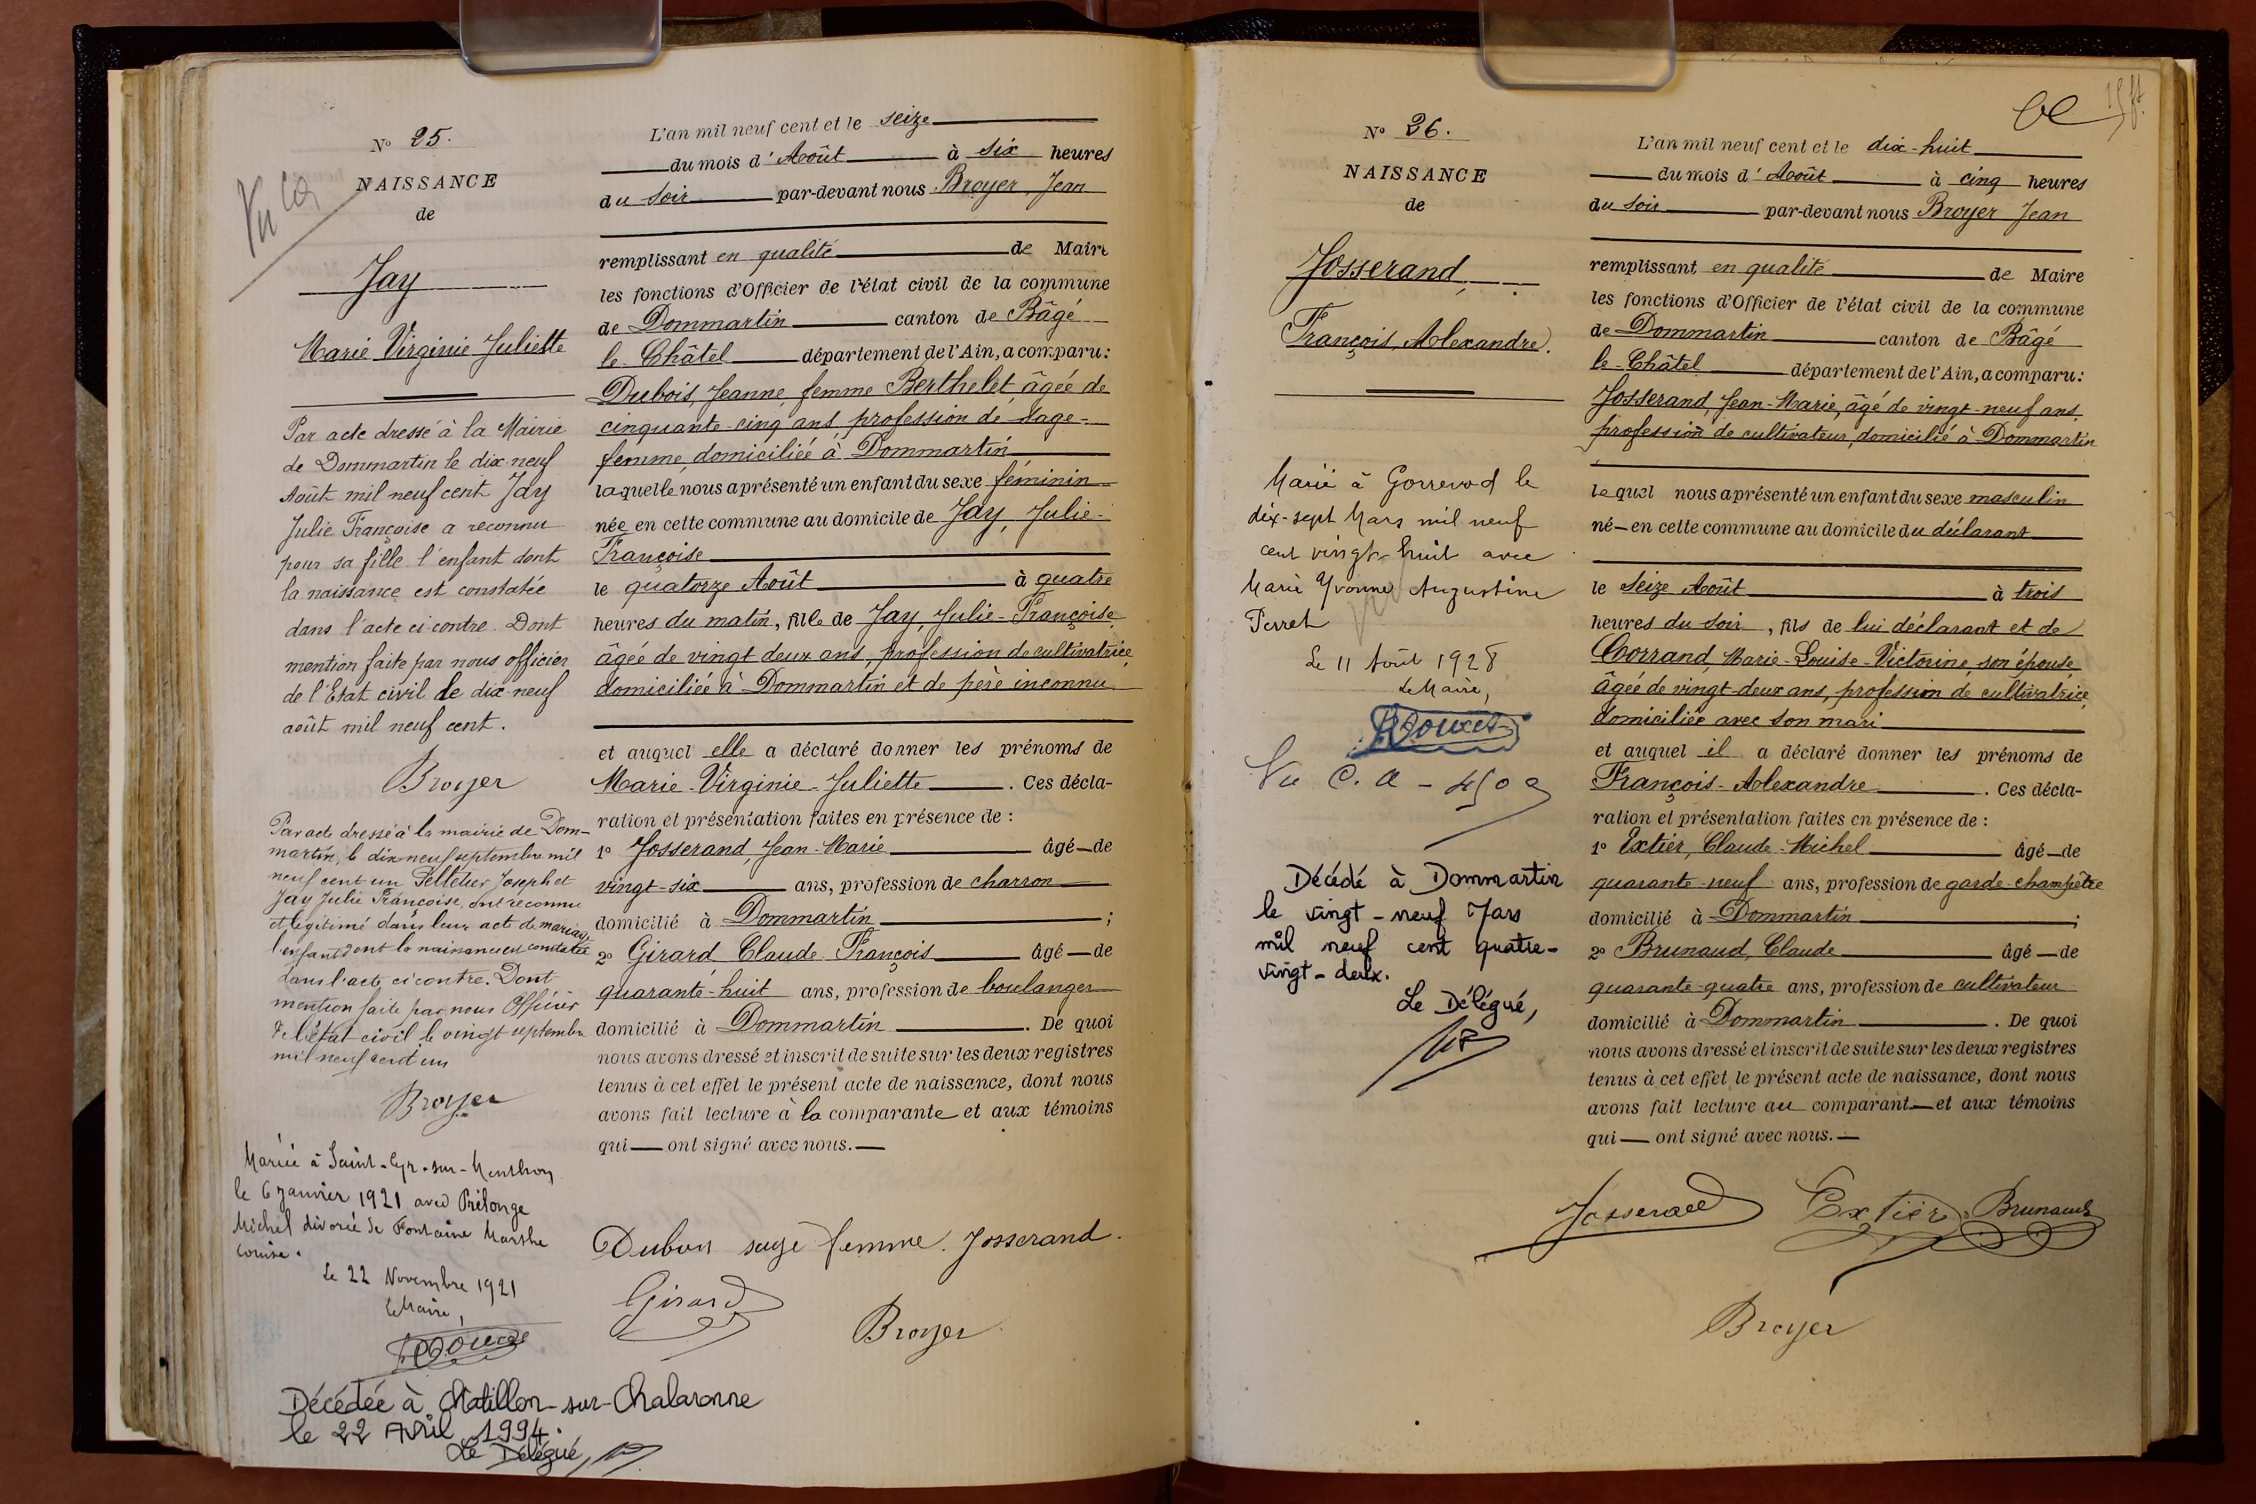 N° 25.
NAISSANCE
de
Jay
Marie Virginie Juliette
Vu
Par acte dressé à la Mairie
de Dommartin le dix-neuf
Août mil neuf cent Jay
Julie Françoise a reconnu
pour sa fille l'enfant dont
la naissance est constatée
dans l'acte ci-contre. Dont
mention faite par nous officier
de l'Etat civil le dix-neuf
août mil neuf cent.
Broyer
Par acte dressé à la mairie de Dom-
martin, le dix-neuf septembre mil
neuf cent un Pelletier Joseph et
Jay Julie Françoise, ont reconnu
et légitimé dans leur acte de mariage
l'enfant dont la naissance est constatée
dans l'acte ci contre. Dont
mention faite par nous Officier
de l'état civil le vingt septembre
mil neuf cent un
Broyer
Mariée à Saint-Cyr-sur-Menthon
le 6 janvier 1921 avec Prélonge
Michel divorcé de Fontaine Marthe
Louise.
Le 22 Novembre 1921
Le Maire,
Décédée à Châtillon-sur-Chalaronne
le 22 Avril 1994.
Le Délégué,
L'an mil neuf cent et le seize
du mois d'Août à six heures
du soir par-devant nous Broyer, Jean
remplissant en qualité de Maire
les fonctions d'Officier de l'état civil de la commune
de Dommartin canton de Bâgé
le Châtel département de l'Ain, a comparu:
Dubois, Jeanne, femme Berthelet, âgée de
cinquante-cinq ans, profession de sage-
femme, domiciliée à Dommartin
laquelle nous a présenté un enfant du sexe féminin
née en cette commune au domicile de Jay, Julie-
Françoise
le quatorze Août à quatre
heures du matin, fille de Jay, Julie-Françoise,
âgée de vingt deux ans, profession de cultivatrice,
domiciliée à Dommartin et de père inconnu
et auquel elle a déclaré donner les prénoms de
Marie-Virginie-Juliette. Ces décla-
ration et présentation faites en présence de :
1° Josserand, Jean-Marie âgé de
vingt-six ans, profession de charron
domicilié à Dommartin ;
2° Girard Claude François âgé de
quarante-huit ans, profession de boulanger
domicilié à Dommartin. De quoi
nous avons dressé et inscrit de suite sur les deux registres
tenus à cet effet le présent acte de naissance, dont nous
avons fait lecture à la comparante et aux témoins
qui — ont signé avec nous. —
Dubois sage femme. Josserand.
Girard
Broyer
N° 26.
NAISSANCE
de
Josserand,
François, Alexandre.
Marié à Gorrevod le
dix-sept Mars mil neuf
cent vingt-huit avec
Marie Yvonne Augustine
Perret
Le 11 Août 1928
Le Maire,
Vu C. A -
Décédé à Dommartin
le vingt-neuf Mars
mil neuf cent quatre-
vingt-deux.
Le Délégué,
L'an mil neuf cent et le dix-huit
du mois d'Août à cinq heures
du soir par-devant nous Broyer Jean
remplissant en qualité de Maire
les fonctions d'Officier de l'état civil de la commune
de Dommartin canton de Bâgé
le-Châtel département de l'Ain, a comparu:
Josserand, Jean-Marie, âgé de vingt-neuf ans,
profession de cultivateur, domicilié à Dommartin
lequel nous a présenté un enfant du sexe masculin
né — en cette commune au domicile du déclarant
le seize Août à trois
heures du soir, fils de lui déclarant et de
Corrand, Marie-Louise-Victorine, son épouse,
âgée de vingt-deux ans, profession de cultivatrice,
domiciliée avec son mari
et auquel il a déclaré donner les prénoms de
François-Alexandre. Ces décla-
ration et présentation faites en présence de :
1° Extier, Claude-Michel âgé de
quarante-neuf ans, profession de garde-champêtre
domicilié à Dommartin ;
2° Brunaud, Claude âgé de
quarante-quatre ans, profession de cultivateur
domicilié à Dommartin. De quoi
nous avons dressé et inscrit de suite sur les deux registres
tenus à cet effet le présent acte de naissance, dont nous
avons fait lecture au comparant — et aux témoins
qui — ont signé avec nous. —
Josserand Extier Brunaud
Broyer